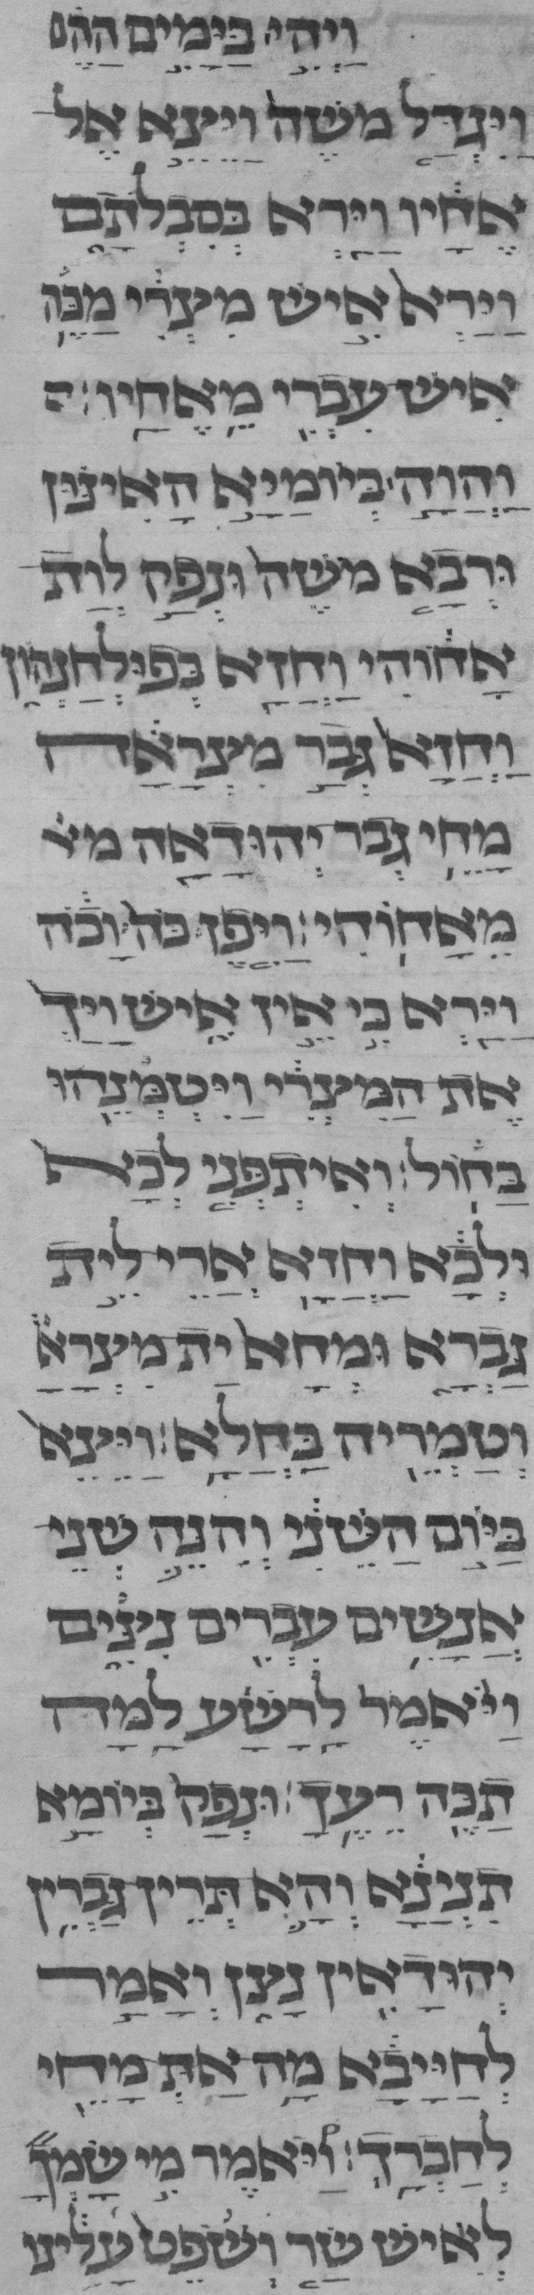 וַיְהִי בַּיָּמִים הָהֵם
וַיִּגְדַּל מֹשֶׁה וַיֵּצֵא אֶל
אֶחָיו וַיַּרְא בְּסִבְלֹתָם
וַיַּרְא אִישׁ מִצְרִי מַכֶּה
אִישׁ עִבְרִי מֵאֶחָיו׃
וַהֲוָה בְּיוֹמַיָּא הָאִינּוּן
וּרְבָא מֹשֶׁה וּנְפַק לְוָת
אֲחוֹהִי וַחֲזָא בְּפוּלְחָנְהוֹן
וַחֲזָא גְּבַר מִצְרָאָה
מָחֵי גְּבַר יְהוּדָאָה
מֵאֲחוֹהִי׃ וַיִּפֶן כֹּה וָכֹה
וַיַּרְא כִּי אֵין אִישׁ וַיַּךְ
אֶת הַמִּצְרִי וַיִּטְמְנֵהוּ
בַּחוֹל׃ וְאִיתְפְּנִי לְכָא
וּלְכָא וַחֲזָא אֲרֵי לֵית
גַּבְרָא וּמְחָא יָת מִצְרָא
וְטַמְרֵיהּ בְּחָלָא׃ וַיֵּצֵא
בַּיּוֹם הַשֵּׁנִי וְהִנֵּה שְׁנֵי
אֲנָשִׁים עִבְרִים נִצִּים
וַיֹּאמֶר לָרָשָׁע לָמָּה
תַכֶּה רֵעֶךָ׃ וּנְפַק בְּיוֹמָא
תִּנְיָנָא וְהָא תְּרֵין גֻּבְרִין
יְהוּדָאִין נָצַן וַאֲמַר
לְחַיָּיבָא מָה אַתְּ מָחֵי
לְחַבְרָךְ׃ וַיֹּאמֶר מִי שָׂמְךָ
לְאִישׁ שַׂר וְשֹׁפֵט עָלֵינוּ